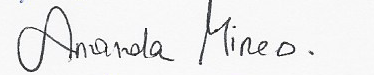 Amanda Mineo.